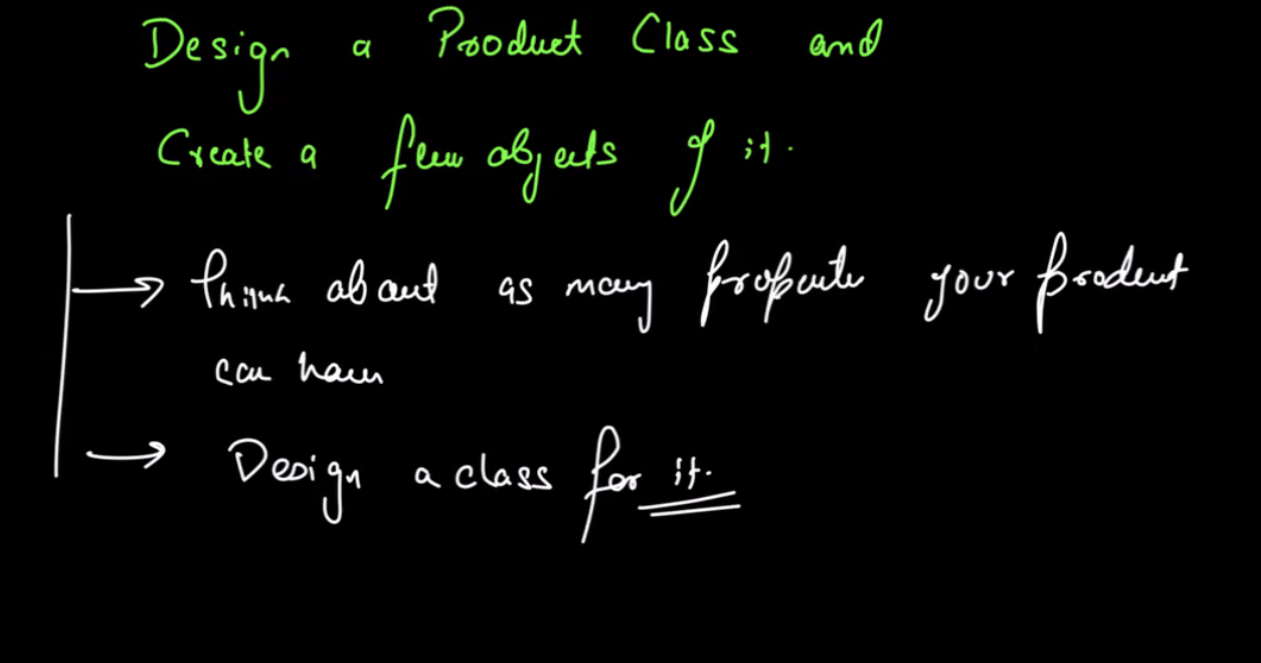 Design a Product Class and
Create a few objects of it.
Think about as many properties your product
can have
Design a class for it.